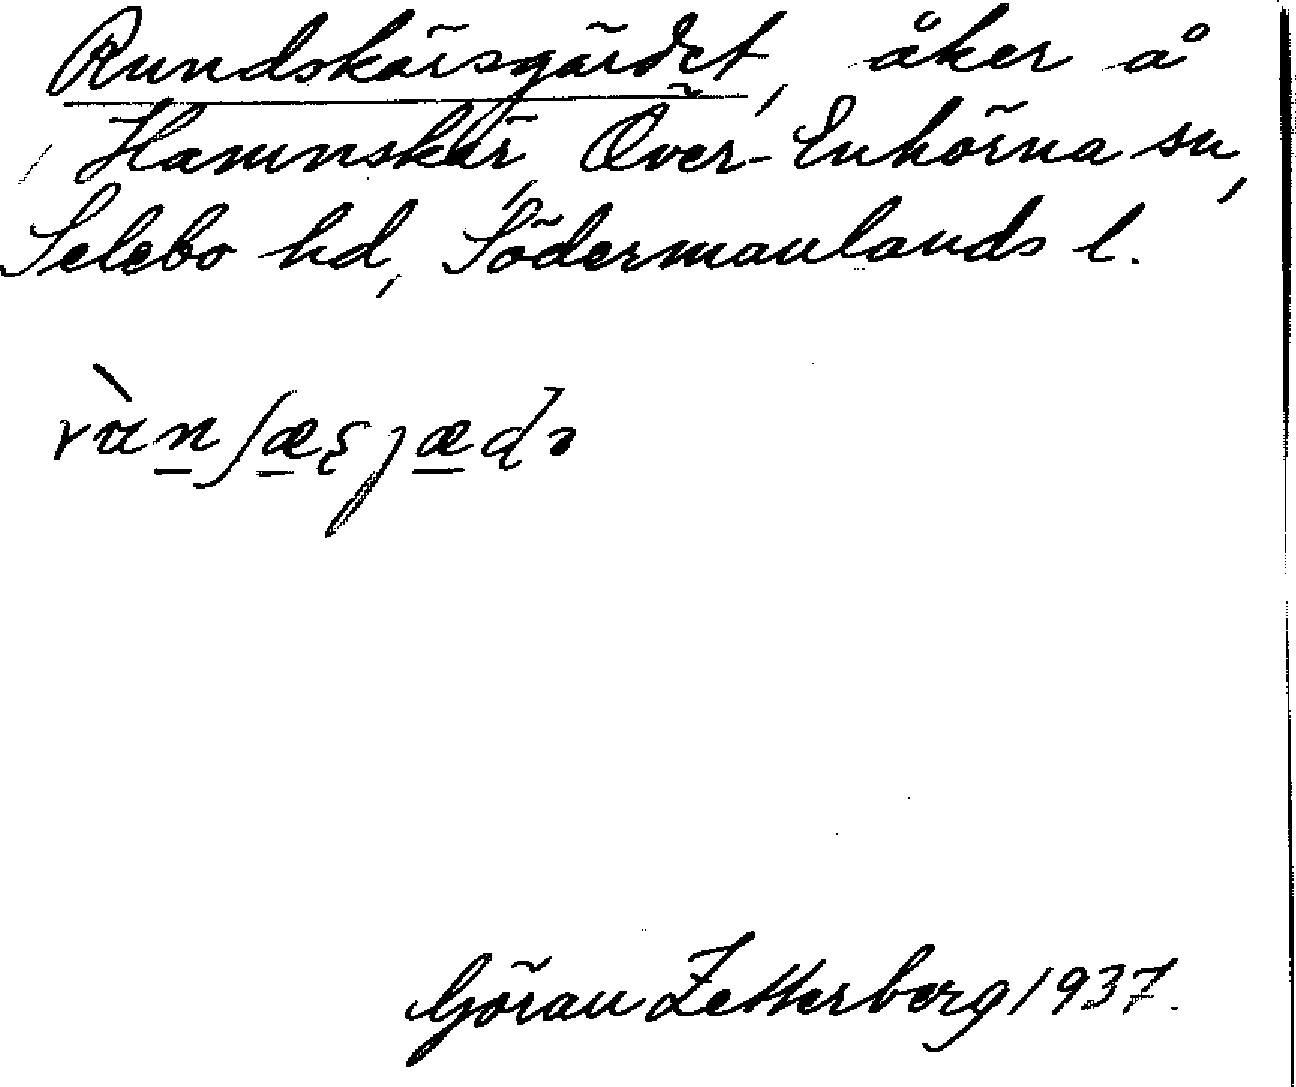 Rundskärsgärdet, åker å
Hamnskär, Över-Enhörna sn,
Selebo hd, Södermanlands l.
Göran Zetterberg 1937.